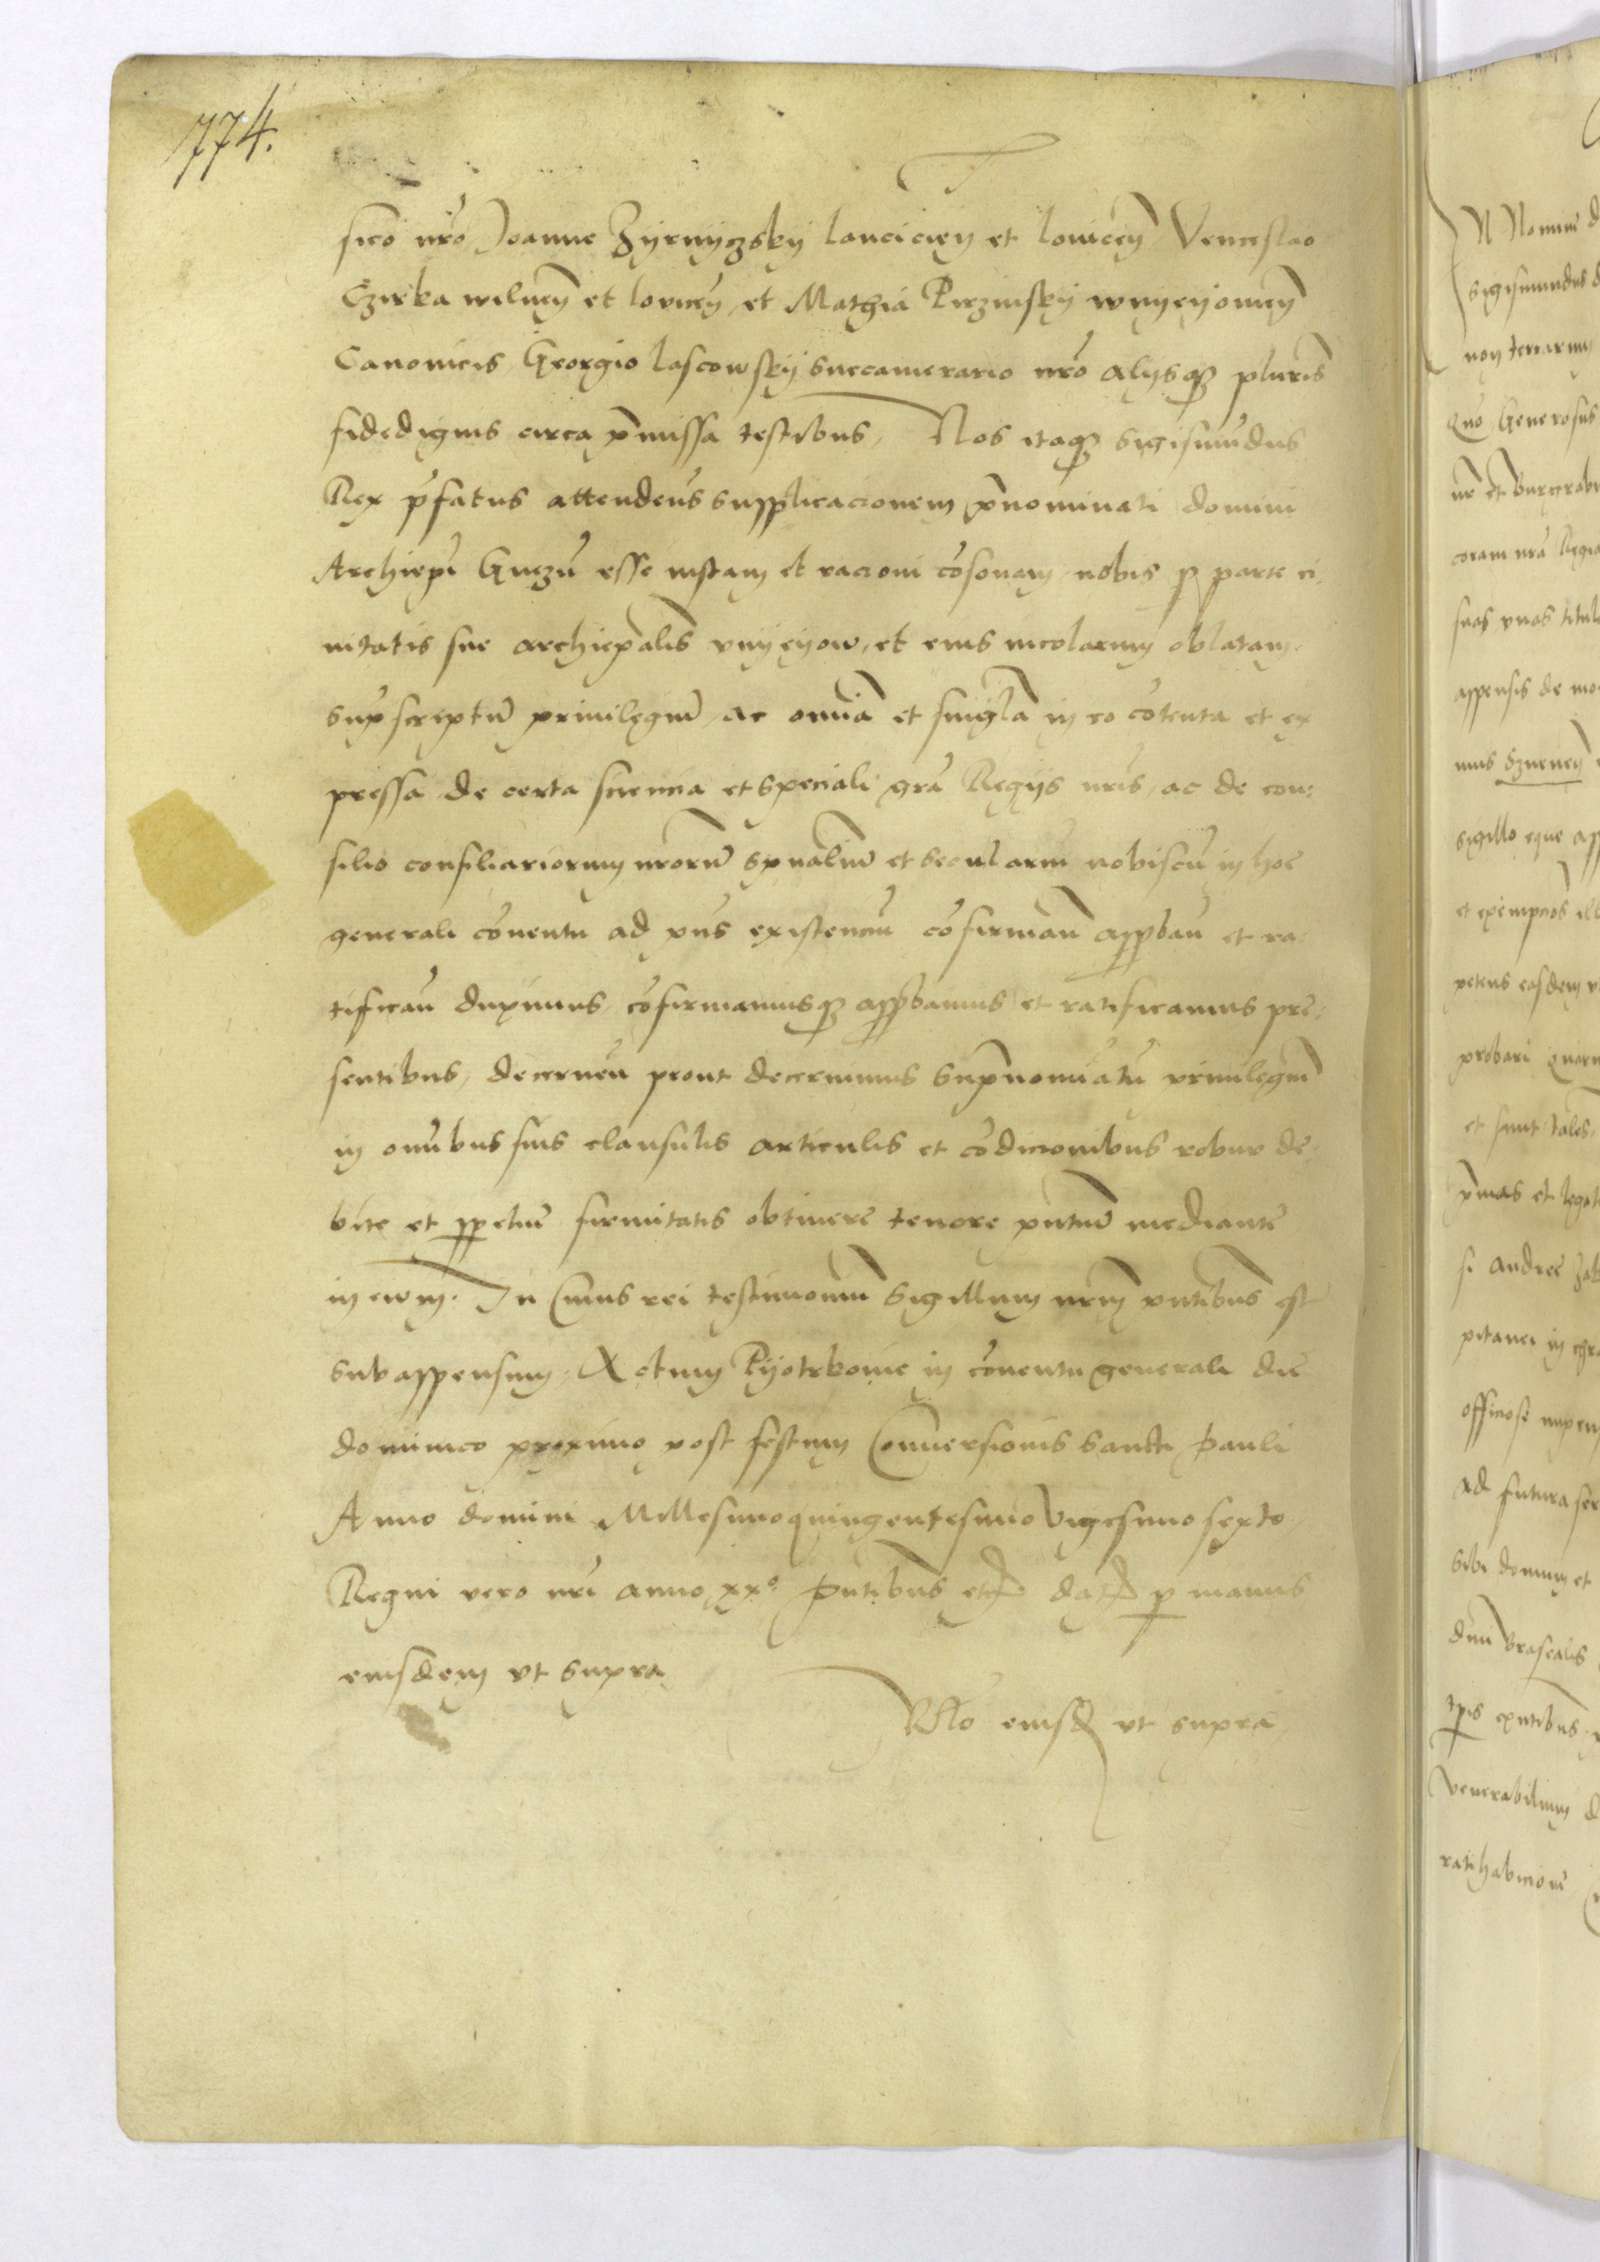 774.
sico nrõ Joanne Zyrnyczskij lanciciẽn et lovicẽn, Venceslao
Czirka wilneñ et loviceñ, et Mathia Pirzinskij wnyeyoviceñ
Canonicis, Georgio lascowskij succamerario nrõ alijsq3 pluribs
fidedignis circa p̃missa testibus, Nos itaq3 Sigismũdus
Rex p̃fatus attendeñs supplicacionem p̃nominati domini
Archiep̃i Gnezñ esse iustam et racioni cõsonam, nobis p parte ci
uitatis sue archiep̃alis vnyeyow, et eius incolarum oblatam
sup̃scriptũ priuilegiũ, ac omĩa et singl̃a in eo cõtenta et ex
pressa de certa sciencia et speciali grã Regijs nrĩs, ac de con:
silio consiliariorum nrõrũ spũaliũ et seculariũ nobiscũ in hoc
generali cõuentu ad p̃ns existenciũ cõfirmañ approbañ et ra:
tificañ duximus, cõfirmamusq3 approbamus et ratificamus pre:
sentibus, decerneñ prout decernimus sup̃nomiatũ priuilegiũ
in omĩbus suis clausulis articulis et cõdicionibus robur de:
bite et ppetue firmitatis obtinere tenore p̃ntiũ mediante
in ewm. In Cuius rei testimoniũ Sigillum nrm̃ p̃ntibus est
subappensum, Actum Pyotrkovie in cõuentu generali die
dominico proximo post festum Conuersionis sancti Pauli
Anno domini Millesimoquingentesimo vigesimo sexto,
Regni vero nrĩ anno xxº. Pñtibus etc̃ dat̃ p manus
eiusdem vt supra
Rl̃o eiusd̃ vt supra
N Nomine d
Sigismundus d
non terrarum
Quo Generosus
coram nrã Regia
suas vnas titul
appensis de mo
sigillo eque app
et exempcioẽs ill
petens easdem v
probari Quaru
et sunt tales,
p̃mas et legat
si Andree Zak
pitanei in
officiose
ad futura ser
sibi domum et
tp̃is exñtibus
Venerabilium d
ratihabicione